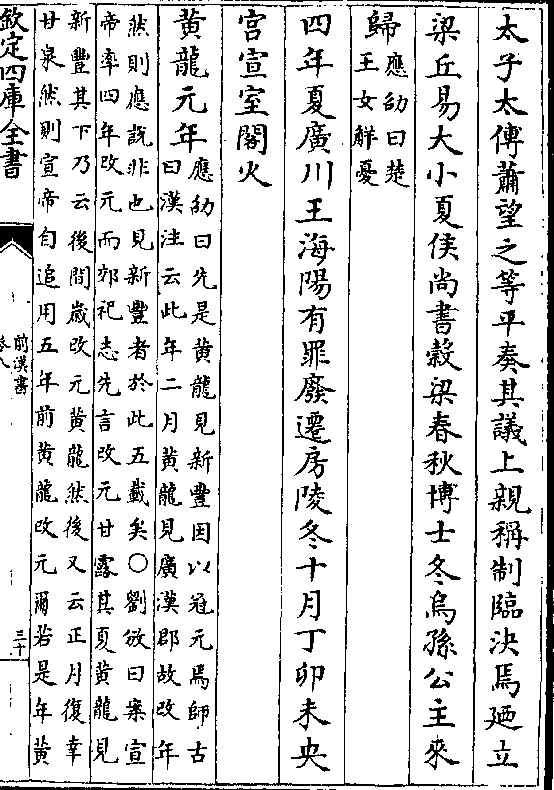 太子太傅蕭望之等平奏其議上親稱制臨決焉廼立
梁丘易大小夏侯尚書穀梁春秋博士冬烏孫公主來
歸應劭曰楚
王女解憂
四年夏廣川王海陽有罪廢遷房陵冬十月丁卯未央
宫宣室閣火
黄龍元年應劭曰先是黄龍見新豐因以冠元焉師古
曰漢注云此年二月黄龍見廣漢郡故改年
然則應説非也見新豐者於此五載矣〇劉攽曰案宣
帝率四年改元而郊祀志先言改元甘露其夏黄龍見
新豐其下乃云後間嵗改元黄龍然後又云正月復幸
甘泉然則宣帝自追用五年前黄龍改元爾若是年黄
欽定四庫全書
前漢書
卷八
三十